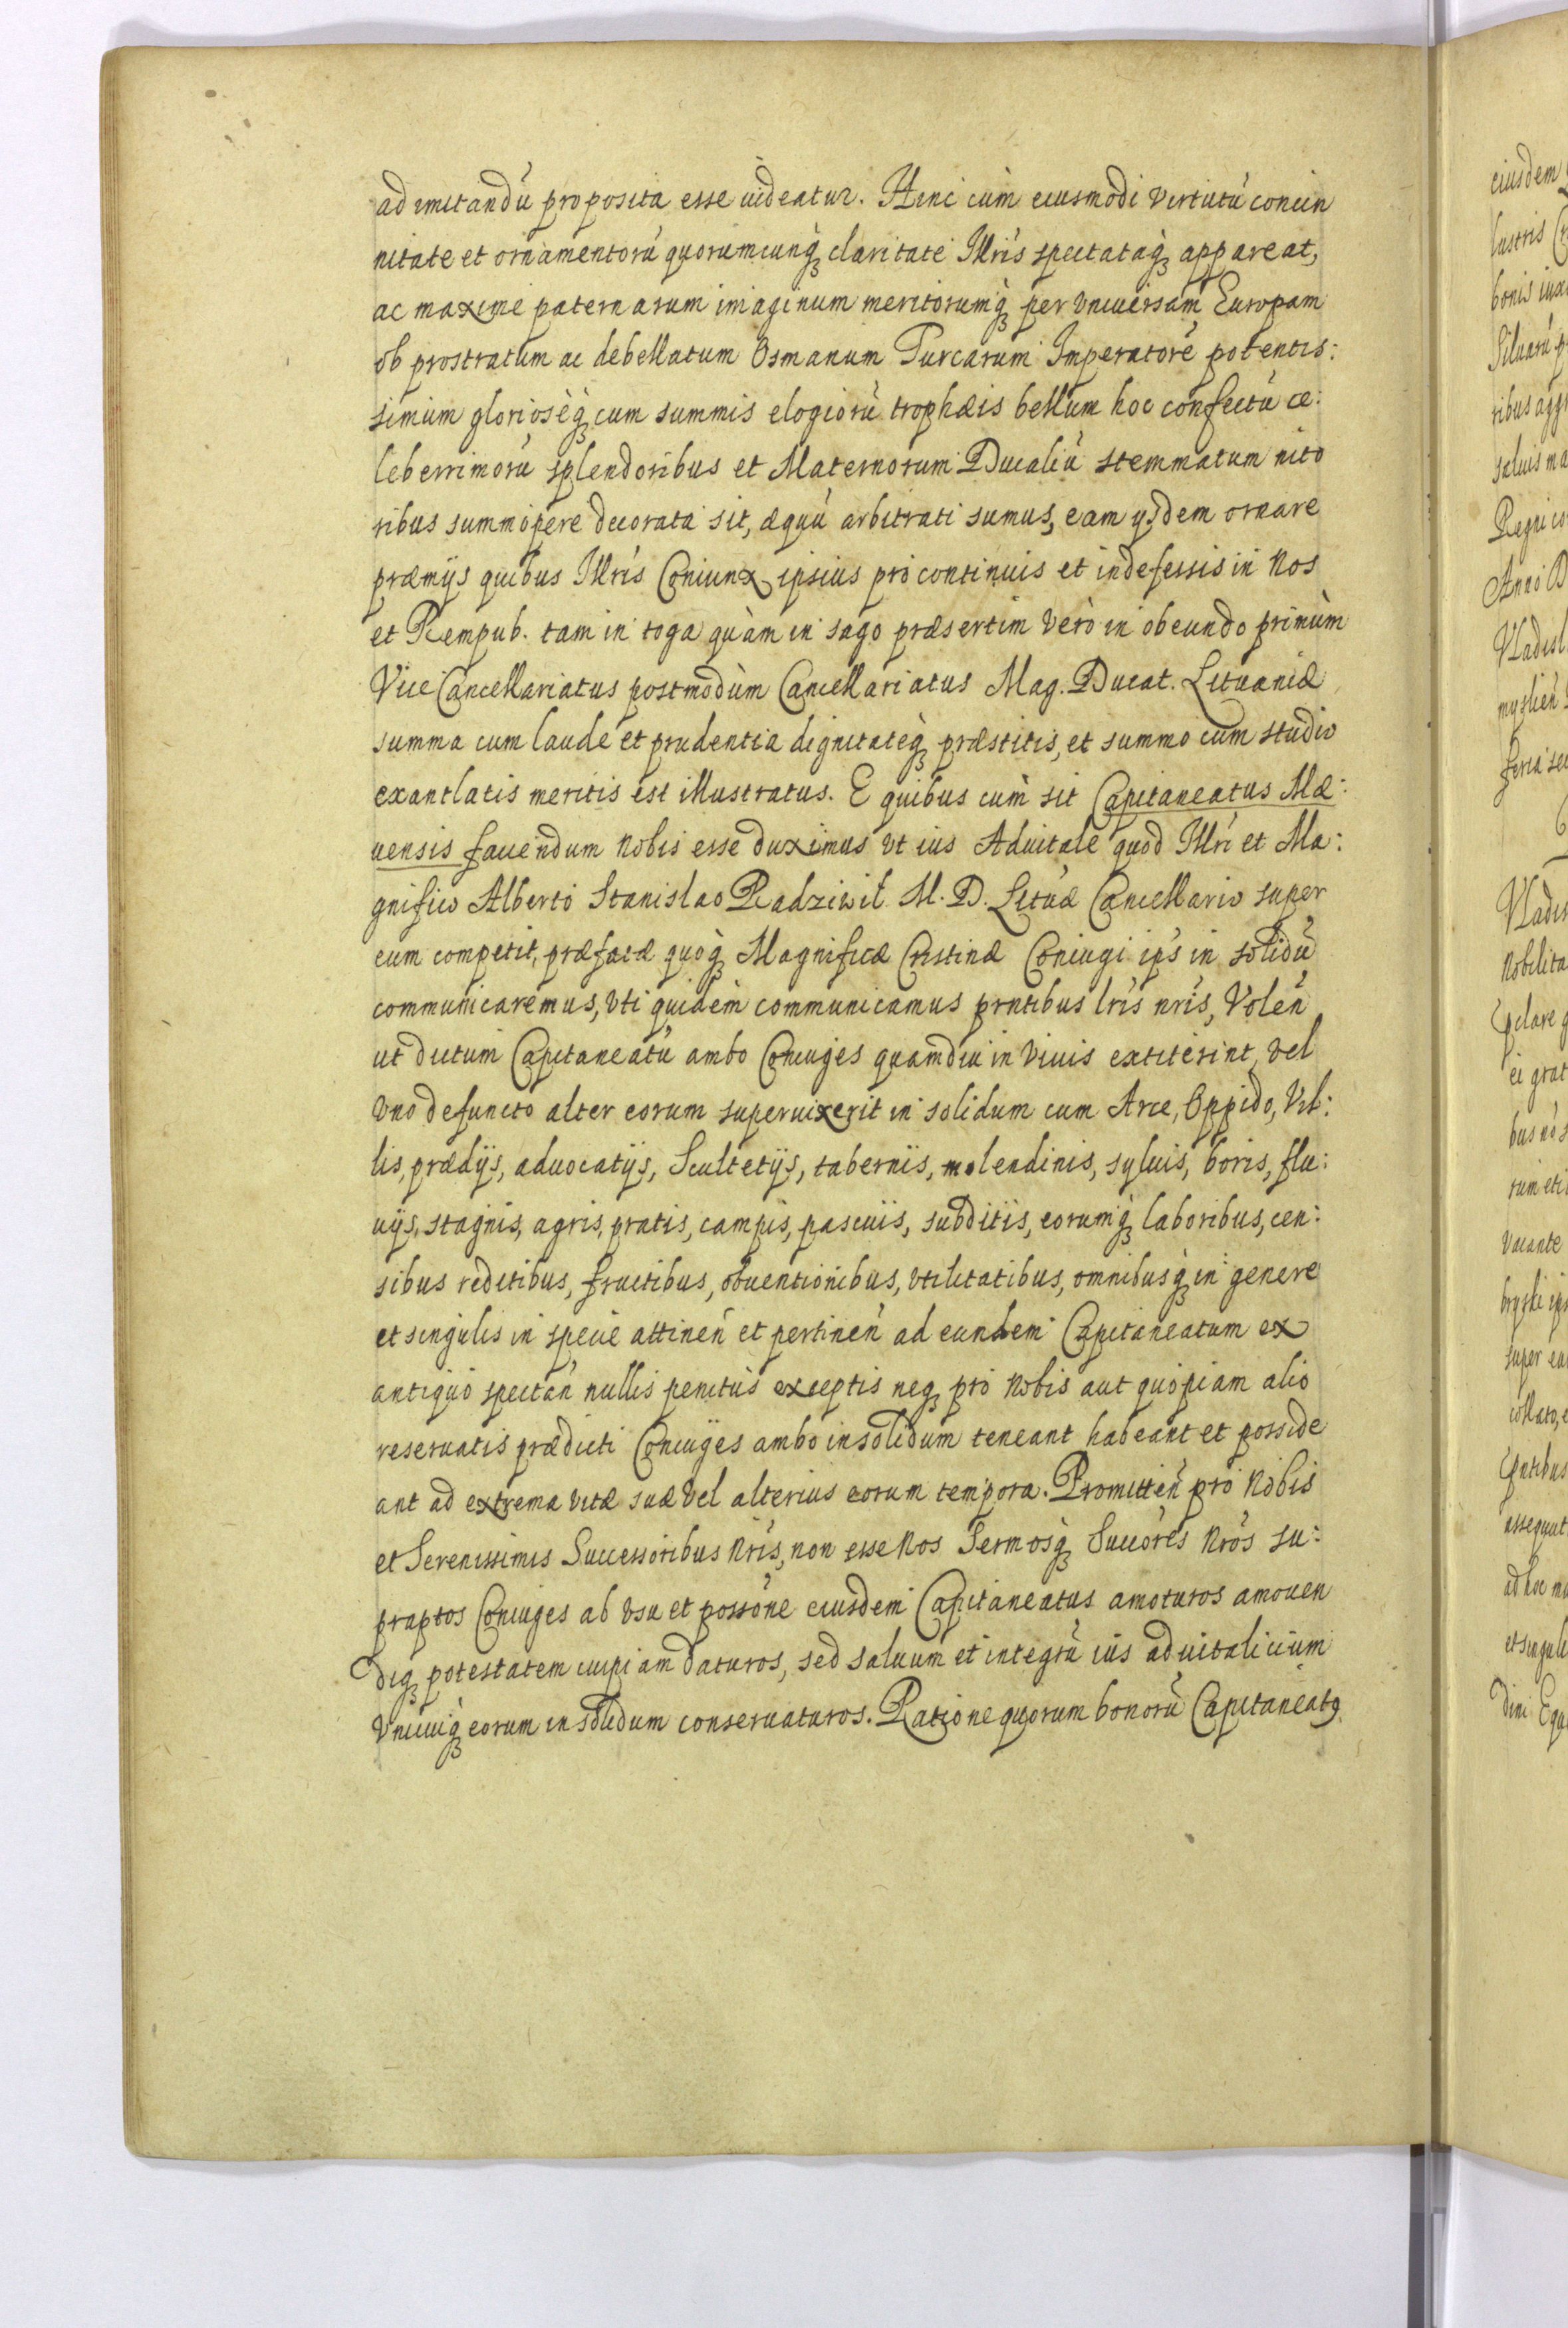 ad imitandū proposita esse uideatur. Hinc cùm eiusmodi virtutū concin
nitate et ornamentorū quorumcunq́ꝫ claritate Illris spectataq́ꝫ appareat,
ac maxime paternarum imaginum meritorumq́ꝫ per vniuersam Europam
ob prostratum ac debellatum Osmanum Turcarum Imperatorē potentis:
simum glorioseq́ꝫ cum summis elogiorū trophæis bellum hoc confectū ce:
leberrimorū splendoribus et Maternorum Ducaliū stemmatum nito
ribus summopere decorata sit, æquū arbitrati sumus, eam ijsdem ornare
præmijs quibus Illris Coniunx ipsius pro continuis et indefessis in Nos
et Rempub. tam in toga quàm in sago præsertim verò in obeundo primùm
Vice Cancellariatus postmodùm Cancellariatus Mag. Ducat. Lituaniæ
summa cum laude et prudentia dignitateq́ꝫ præstitis, et summo cum studio
exantlatis meritis est illustratus. E quibus cùm sit Capitaneatus Mæ:
uensis fauendum Nobis esse duximus vt ius Aduitale quod Illri et Ma:
gnifico Alberto Stanislao Radziwił M. D. Lituæ Cancellario super
eum competit, præfatæ quoq́ꝫ Magnificæ Cristinæ Coniugi ip̄s in solidū
communicaremus, vti quidem communicamus prntibus lris nris, Volen̄
ut dictum Capitaneatū ambo Coniuges quamdiu in viuis extiterint, vel
vno defuncto alter eorum superuixerit in solidum cum Arce, Oppido, Vil:
lis, prædijs, aduocatijs, Scultetijs, tabernis, molendinis, syluis, boris, flu:
uijs, stagnis, agris, pratis, campis, pascuis, subditis, eorumq́ꝫ laboribus, cen:
sibus reditibus, fructibus, obuentionibus, vtilitatibus, omnibusq́ꝫ in genere
et singulis in specie attinen̄ et pertinen̄ ad eundem Capitaneatum ex
antiquo spectan̄ nullis penitus exceptis neqꝫ pro Nobis aut quopiam alio
reseruatis prædicti Coniuges ambo in solidum teneant habeant et posside
ant ad extrema vitæ suæ vel alterius eorum tempora. Promitten̄ pro Nobis
et Serenissimis Successoribus Nris, non esse Nos Sermosq́ꝫ Succores Nros su:
praptos Coniuges ab vsu et possone eiusdem Capitaneatus amoturos amouen
diqꝫ potestatem cuipiam daturos, sed saluum et integrū ius aduitalicium
vnicuiq́ꝫ eorum in solidum conseruaturos. Ratione quorum bonorū Capitaneatꝰ
eiusdem
lustris
bonis iux
Siluarū p
ribus agg
saluis ma
Regni co
Anno D
Vladisl
myslien̄
feria se
Vladis
Nobilita
ei grat
bus nos
rum eti
vacante
super ea
collato, e
assequut
ad hoc m
et singuli
dini Equ